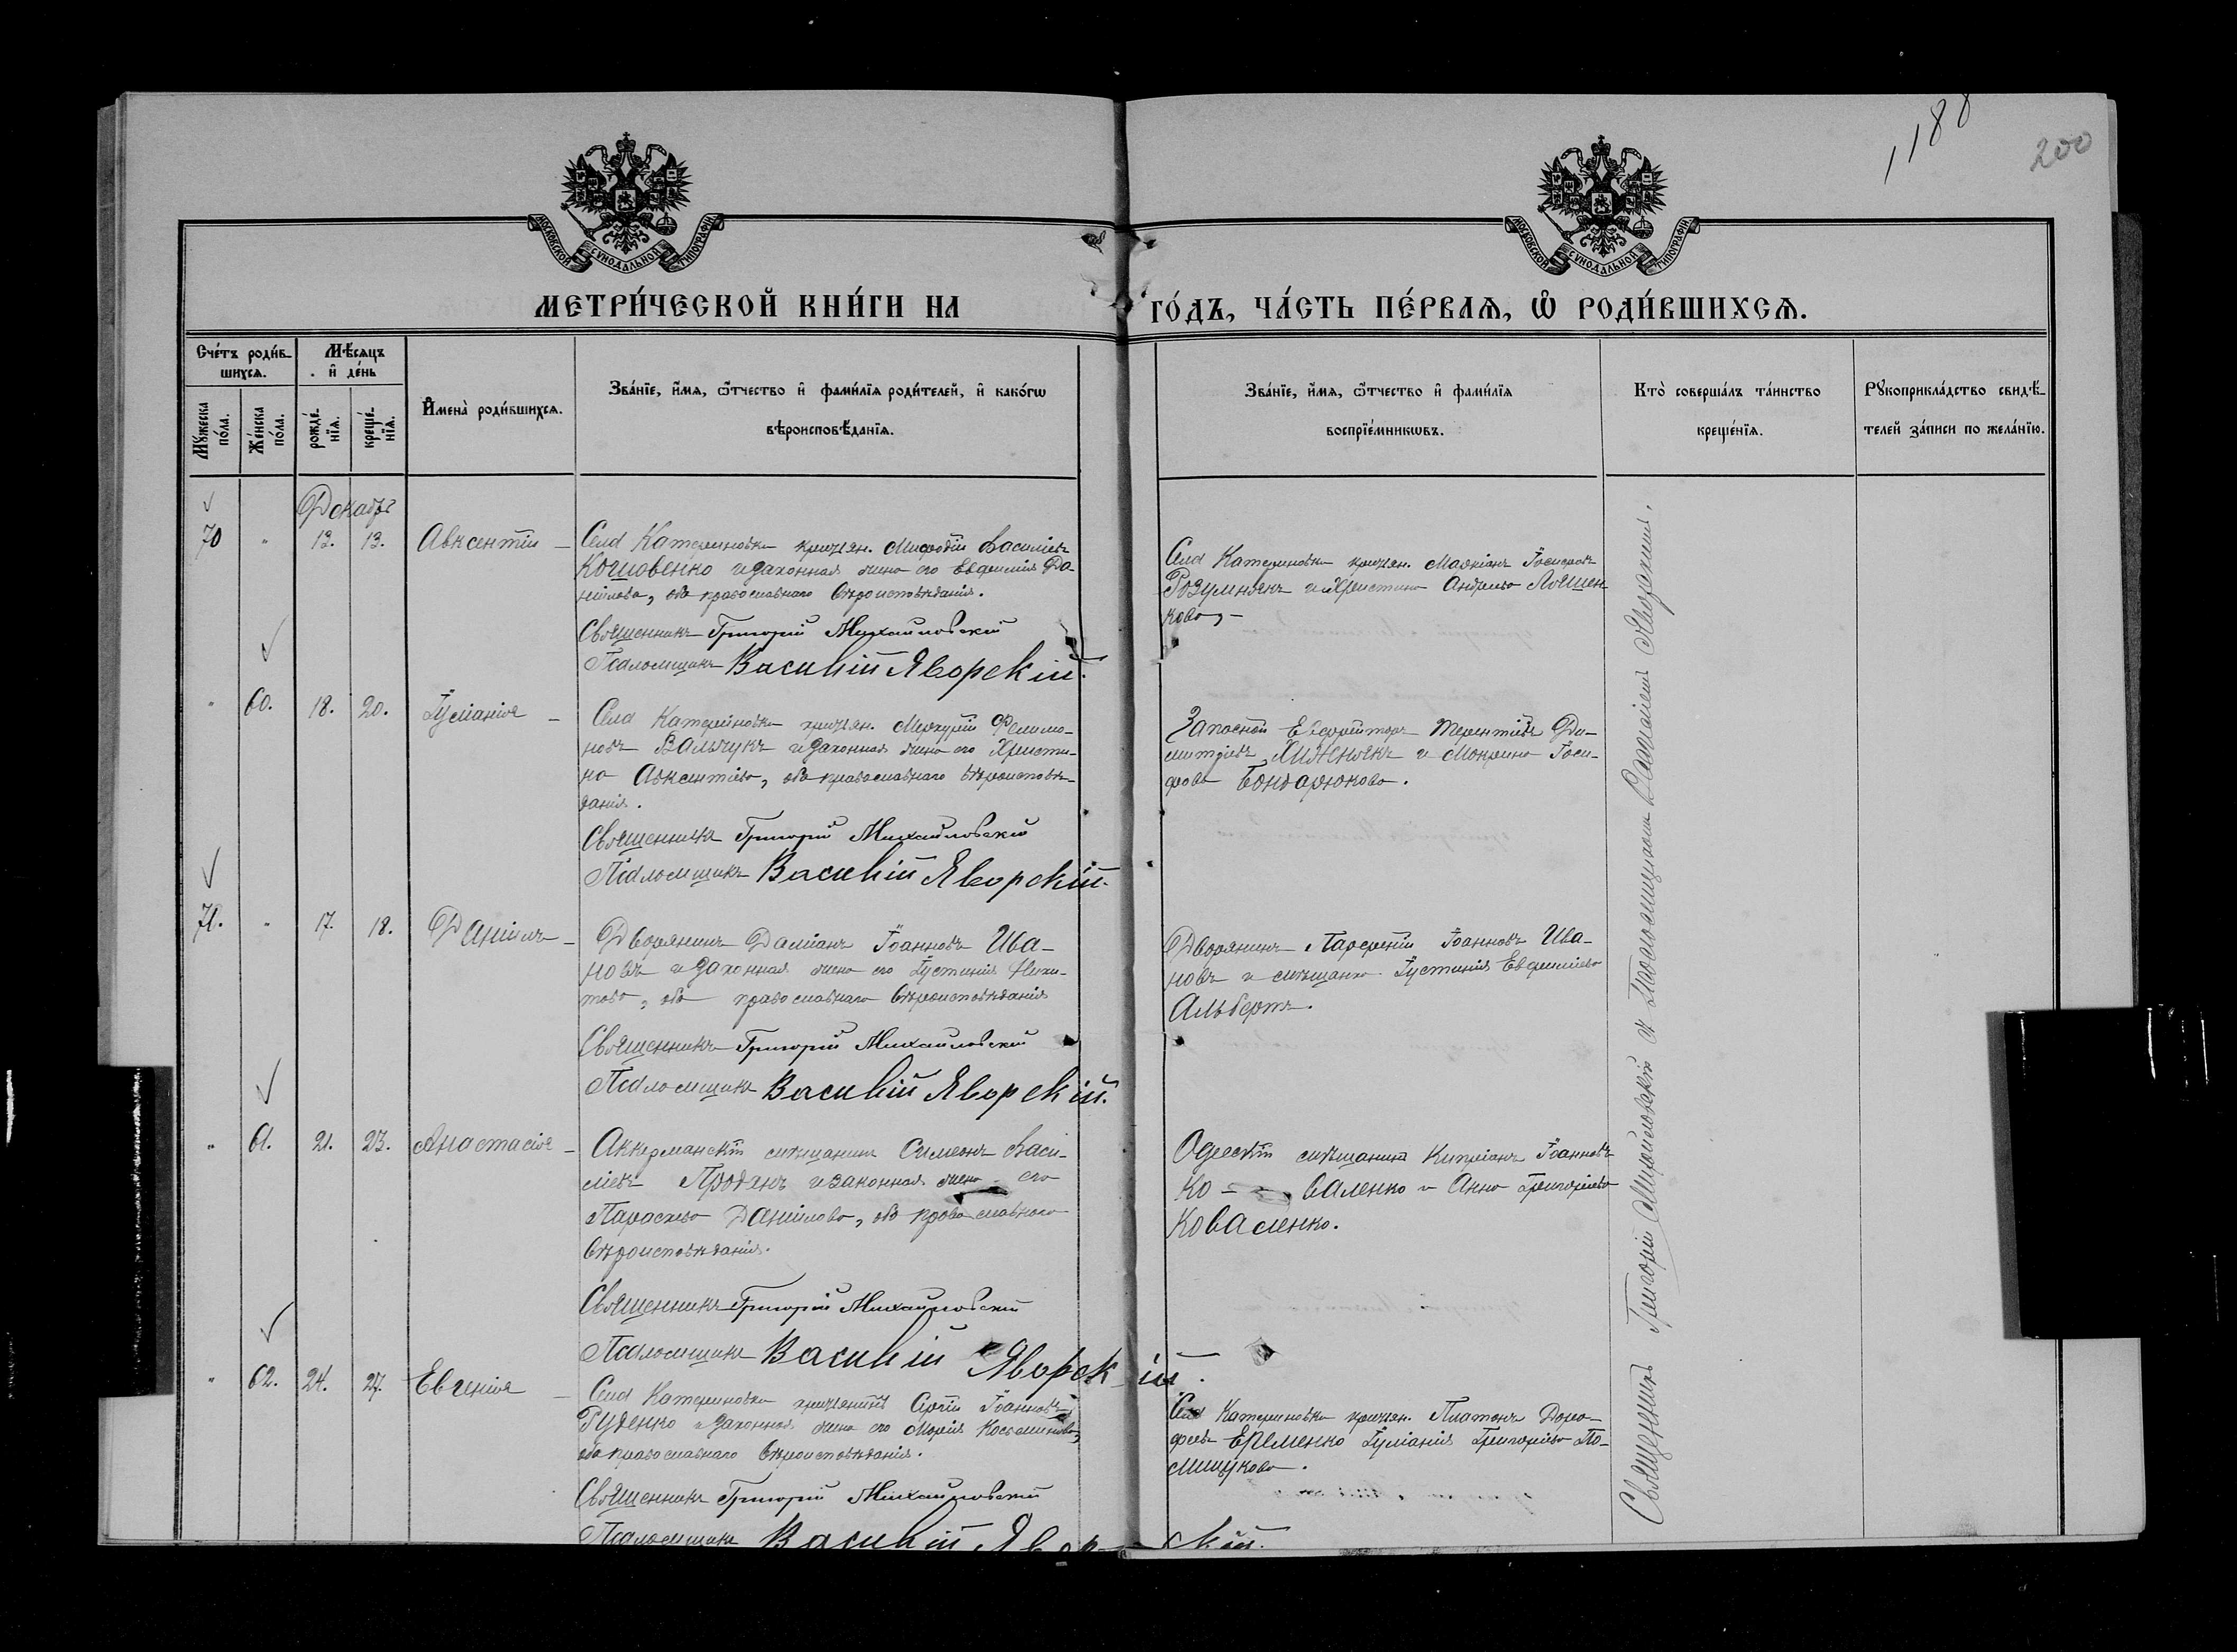 1188
200
МОСКОВСКОЙ СѴНОДАЛЬНОЙ ТИПОГРАФІИ
МОСКОВСКОЙ СѴНОДАЛЬНОЙ ТИПОГРАФІИ
МЕТРИ́ЧЕСКОЙ КНИ́ГИ НА
ГО́ДЪ, ЧА́СТЬ ПЕ́РВАѦ, Ѡ҆ РОДИ́ВШИХСѦ.
Сче́тъ роди́в-
шихсѧ.
Мѣ́сѧцъ
и҆ де́нь
Мꙋ́жеска
по́ла.
Же́нска
по́ла.
рожде́-
нїѧ.
креще́-
нїѧ.
И҆мена̀ роди́вшихсѧ.
Зва́нїе, и҆́мѧ, ѻ҆́тчество и҆ фами́лїѧ роди́телей, и҆ како́гѡ
вѣроисповѣ́данїѧ.
Зва́нїе, и҆́мѧ, ѻ҆́тчество и҆ фами́лїѧ
воспрїе́мникѡвъ.
Кто̀ соверша́лъ та́инство
креще́нїѧ.
Рꙋкоприкла́дство свидѣ́-
телей за́писи по жела́нїю.
Декабрь
70 " 13. 13. Авксентій –
Села Катериновки крестьян. Мефодій Василіевъ
Кошовенко и законная жена его Евфимія Да-
нилова, оба православнаго вѣроисповѣданія.
Священникъ Григорій Михайловскій
Псаломщикъ Василій Яворскій.
Села Катериновки крестьян. Маркіанъ Іосифовъ
Розумнякъ и Христина Андреева Ляшен-
кова, –
" 60. 18. 20. Іуліанія –
Села Катериновки крестьян. Меркурій Филимо-
новъ Вальчукъ и законная жена его Христи-
на Авксентіева, оба православнаго вѣроисповѣ-
данія.
Священникъ Григорій Михайловскій
Псаломщикъ Василій Яворскій.
Запасной Ефрейторъ Терентій Ди-
митріевъ Хижнякъ и Мокрина Іоси-
фова Бондарюкова.
71. " 17. 18. Даніилъ –
Дворянинъ Даміанъ Іоанновъ Ива-
новъ и законная жена его Іустинія Ники-
това, оба православнаго вѣроисповѣданія
Священникъ Григорій Михайловскій
Псаломщикъ Василій Яворскій.
Дворянинъ Парфеній Іоанновъ Ива-
новъ и мѣщанка Іустинія Евфиміева
Альбертъ.
" 61. 21. 23. Анастасія –
Аккерманскій мѣщанинъ Симеонъ Васи-
ліевъ Проданъ и законная жена его
Параскева Данилова, оба православнаго
вѣроисповѣданія.
Священникъ Григорій Михайловскій
Псаломщикъ Василій Яворскій.
Одесскій мѣщанинъ Кипріанъ Іоанновъ
Ко - - валенко и Анна Григоріева
Коваленко.
" 62. 24. 27. Евгенія –
Села Катериновки крестьянинъ Сергій Іоанновъ
Руденко и законная жена его Марія Косьминова,
оба православнаго вѣроисповѣданія.
Священникъ Григорій Михайловскій
Псаломщикъ Василій Яворскій.
Села Катериновки крестьян. Платонъ Доро-
феевъ Еременко Іуліанія Григоріева
Священникъ Григорій Михайловскій и Псаломщикъ Василій Яворскій.